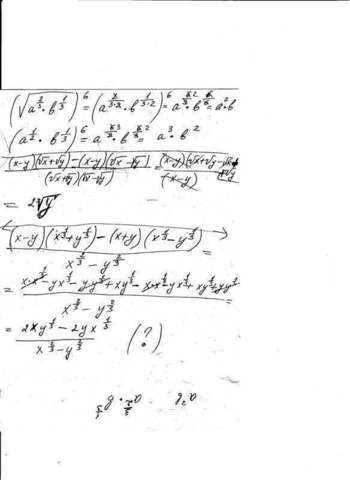 (√(a^(2/3) · b^(1/3)))^6 = (a^(2/(3·2)) · b^(1/(3·2)))^6 = a^(6/3) · b^(6/6) = a² · b
(a^(1/2) · b^(1/3))^6 = a^(6/2) · b^(6/3) = a³ · b²
((x-y)(√x+√y) - (x-y)(√x-√y)) / ((√x+√y)(√x-√y)) = ((x-y)(√x+√y-√x+√y)) / (x-y)
= 2√y
((x-y)(x^(1/3)+y^(1/3)) - (x+y)(x^(1/3)-y^(1/3))) / (x^(2/3)-y^(2/3)) =
= (x·x^(1/3) - yx^(1/3) - y·y^(1/3) + xy^(1/3) - x·x^(1/3) - yx^(1/3) + xy^(1/3) + y·y^(1/3)) / (x^(2/3)-y^(2/3)) =
= (2xy^(1/3) - 2yx^(1/3)) / (x^(2/3)-y^(2/3)) (?)